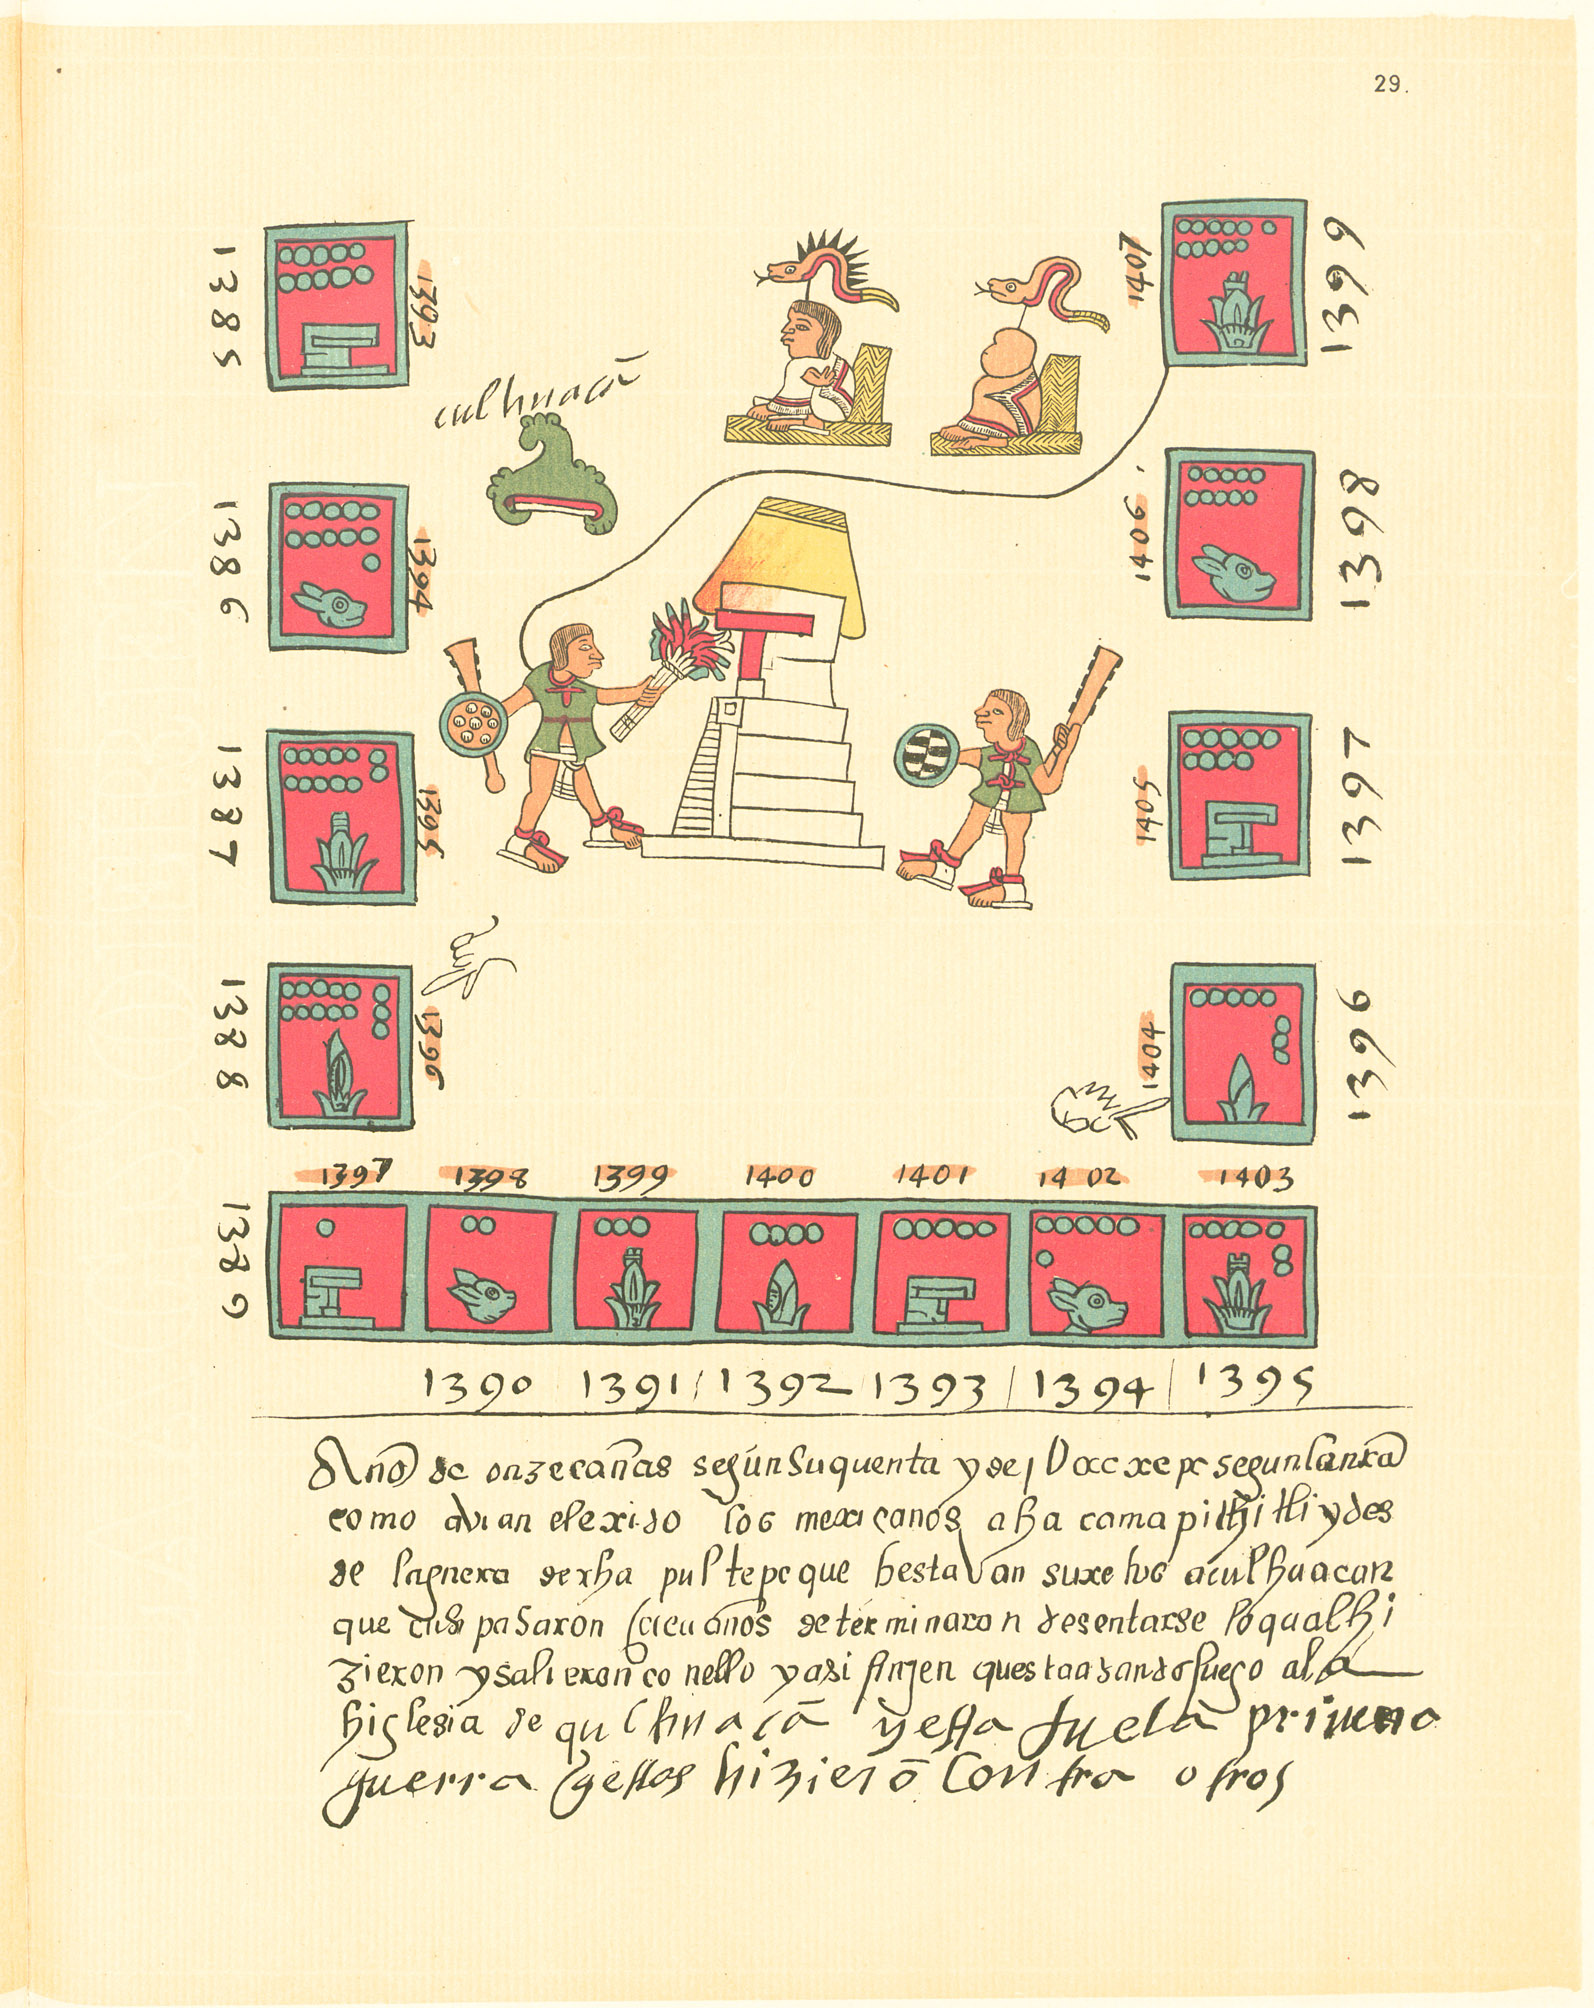 29.
1385
1393
culhuacã
1407
1399
1386
1394
1406
1398
1387
1395
1405
1397
1388
1396
1404
1396
1397 1398 1399 1400 1401 1402 1403
1389
1390 1391 1392 1393 1394 1395
Año de onze cañas según su quenta y de
como avian elexido los mexicanos a y des
de la de pultepeque hestavan suxetos a culhuacan
que pasaron años determinaron desentarse lo qual hi
zieron y salieron co nello y asi finjen questaa dando fuego al a
higlesia de qulhuacã y esta fue la primera
guerra q estos hizierõ contra otros